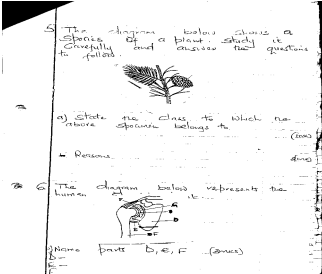 5 The diagram below shows a
species of a plant. Study it
carefully and answer the questions
to follow.
a) State the class to which the
above specimen belongs to
b Reasons
6 The diagram below represents the
human
F
G
D
E
F
Name parts D, E, F (3mks)
D -
E -
F